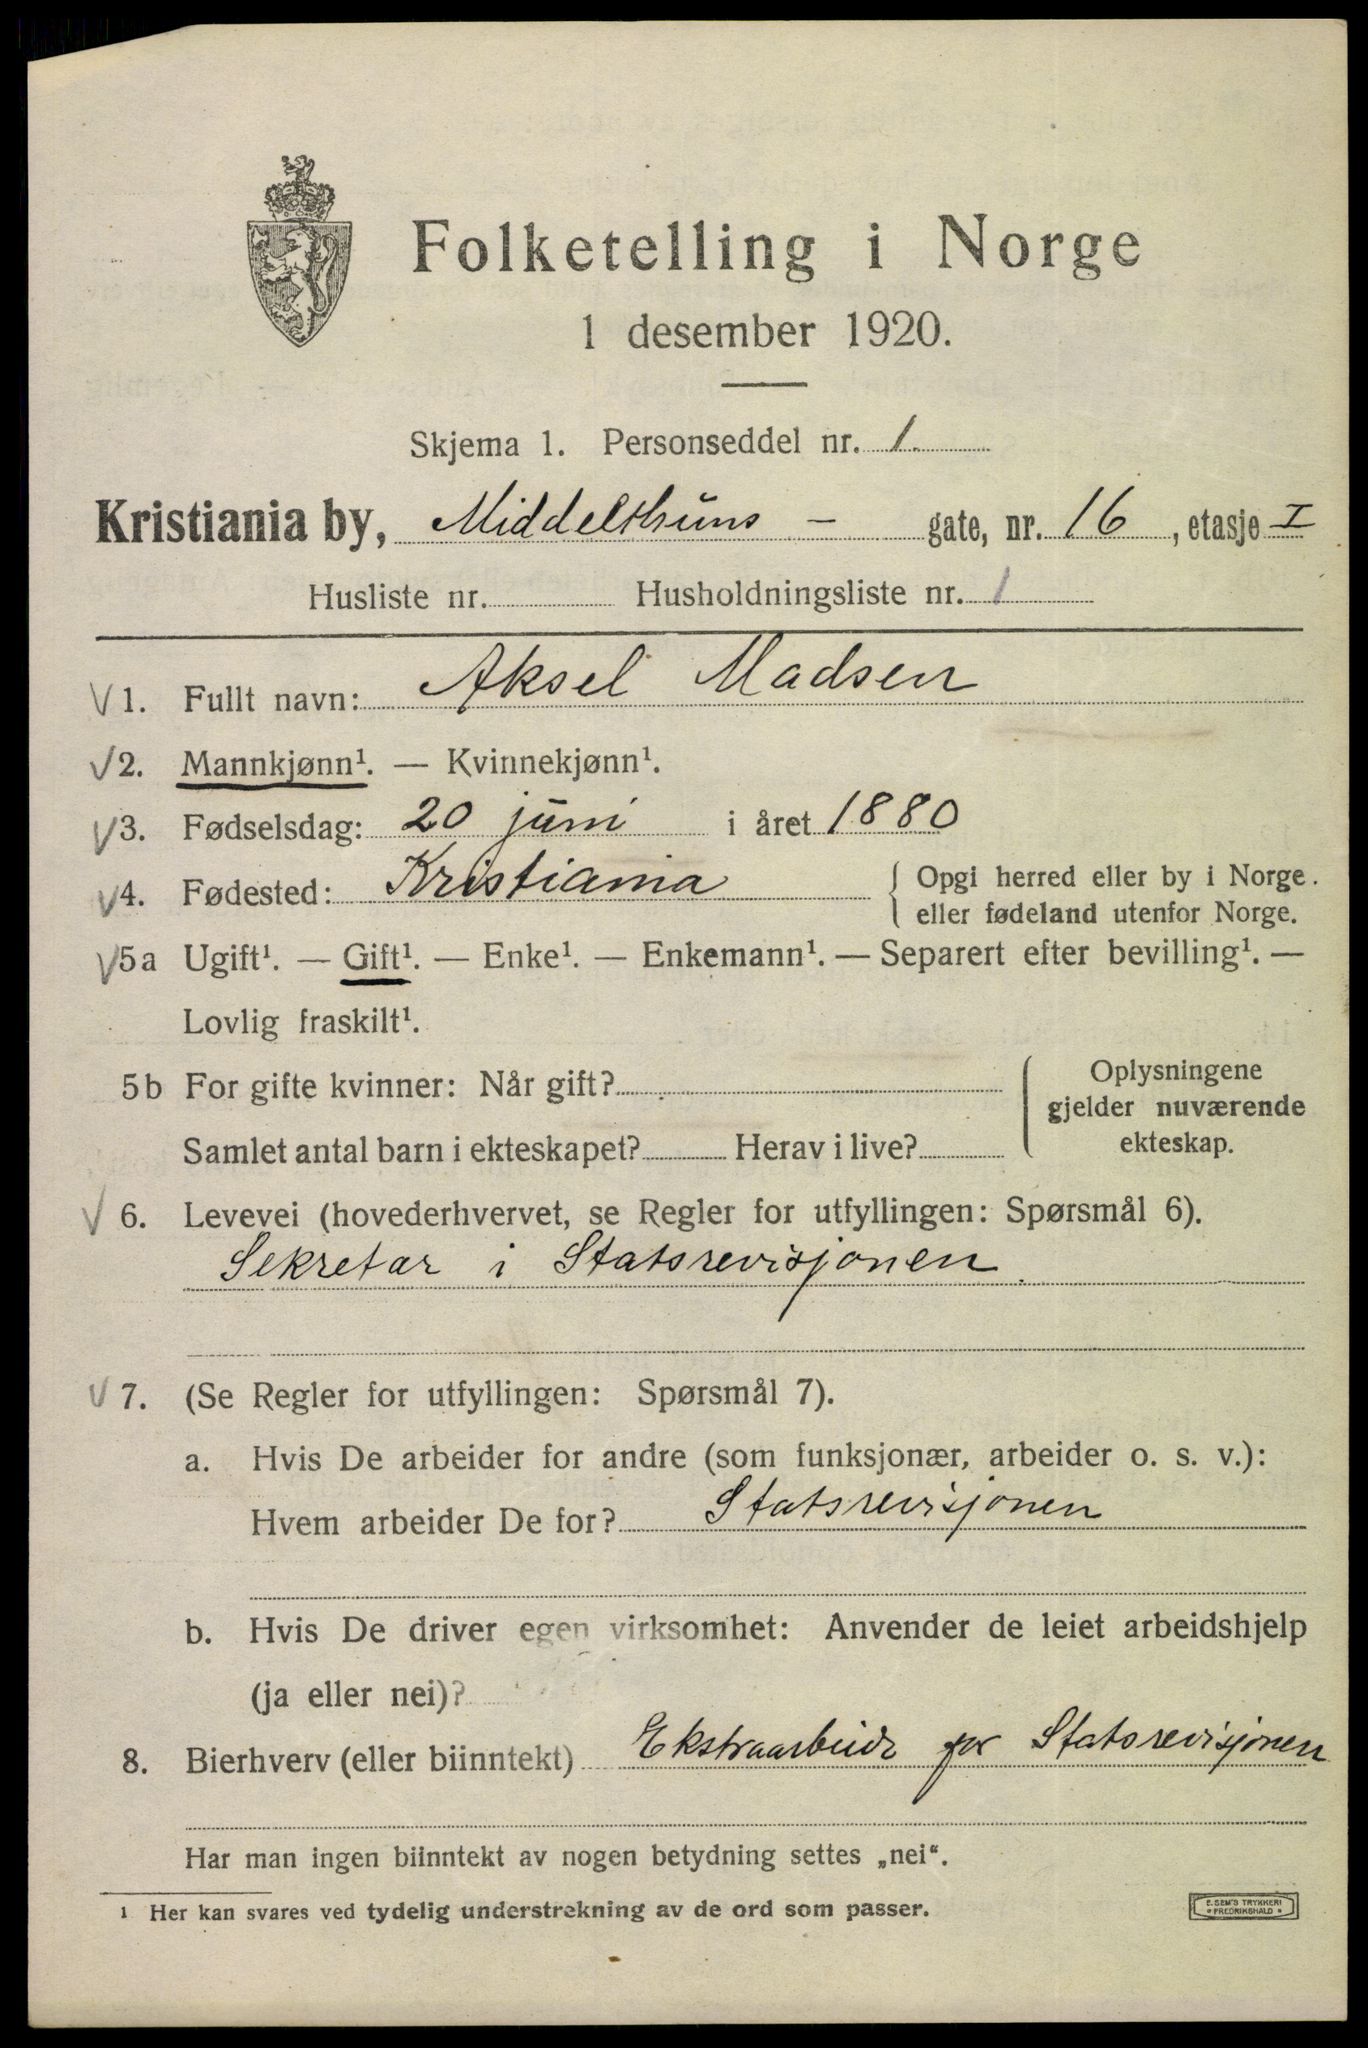 Folketelling i Norge
1 desember 1920.
Skjema 1. Personseddel nr. 1.
Kristiania by, Middelthuns - gate, nr. 16, etasje I
Husliste nr. Husholdningsliste nr. 1
1. Fullt navn: Aksel Madsen
2. Mannkjønn¹. — Kvinnekjønn¹.
3. Fødselsdag: 20 juni i året 1880
4. Fødested: Kristiania { Opgi herred eller by i Norge.
eller fødeland utenfor Norge.
5a Ugift¹. — Gift¹. — Enke¹. — Enkemann¹. — Separert efter bevilling¹. —
Lovlig fraskilt¹.
5b For gifte kvinner: Når gift? Oplysningene
gjelder nuværende
Samlet antal barn i ekteskapet? Herav i live? ekteskap.
6. Levevei (hovederhvervet, se Regler for utfyllingen: Spørsmål 6).
Sekretær i Statsrevisjonen.
7. (Se Regler for utfyllingen: Spørsmål 7).
a. Hvis De arbeider for andre (som funksjonær, arbeider o. s. v.):
Hvem arbeider De for? Statsrevisjonen
b. Hvis De driver egen virksomhet: Anvender de leiet arbeidshjelp
(ja eller nei)?
8. Bierhverv (eller biinntekt) Ekstraarbeide for Statsrevisjonen
Har man ingen biinntekt av nogen betydning settes „nei“.
¹ Her kan svares ved tydelig understrekning av de ord som passer.
E. SEM'S TRYKKERI
* FREDRIKSHALD *